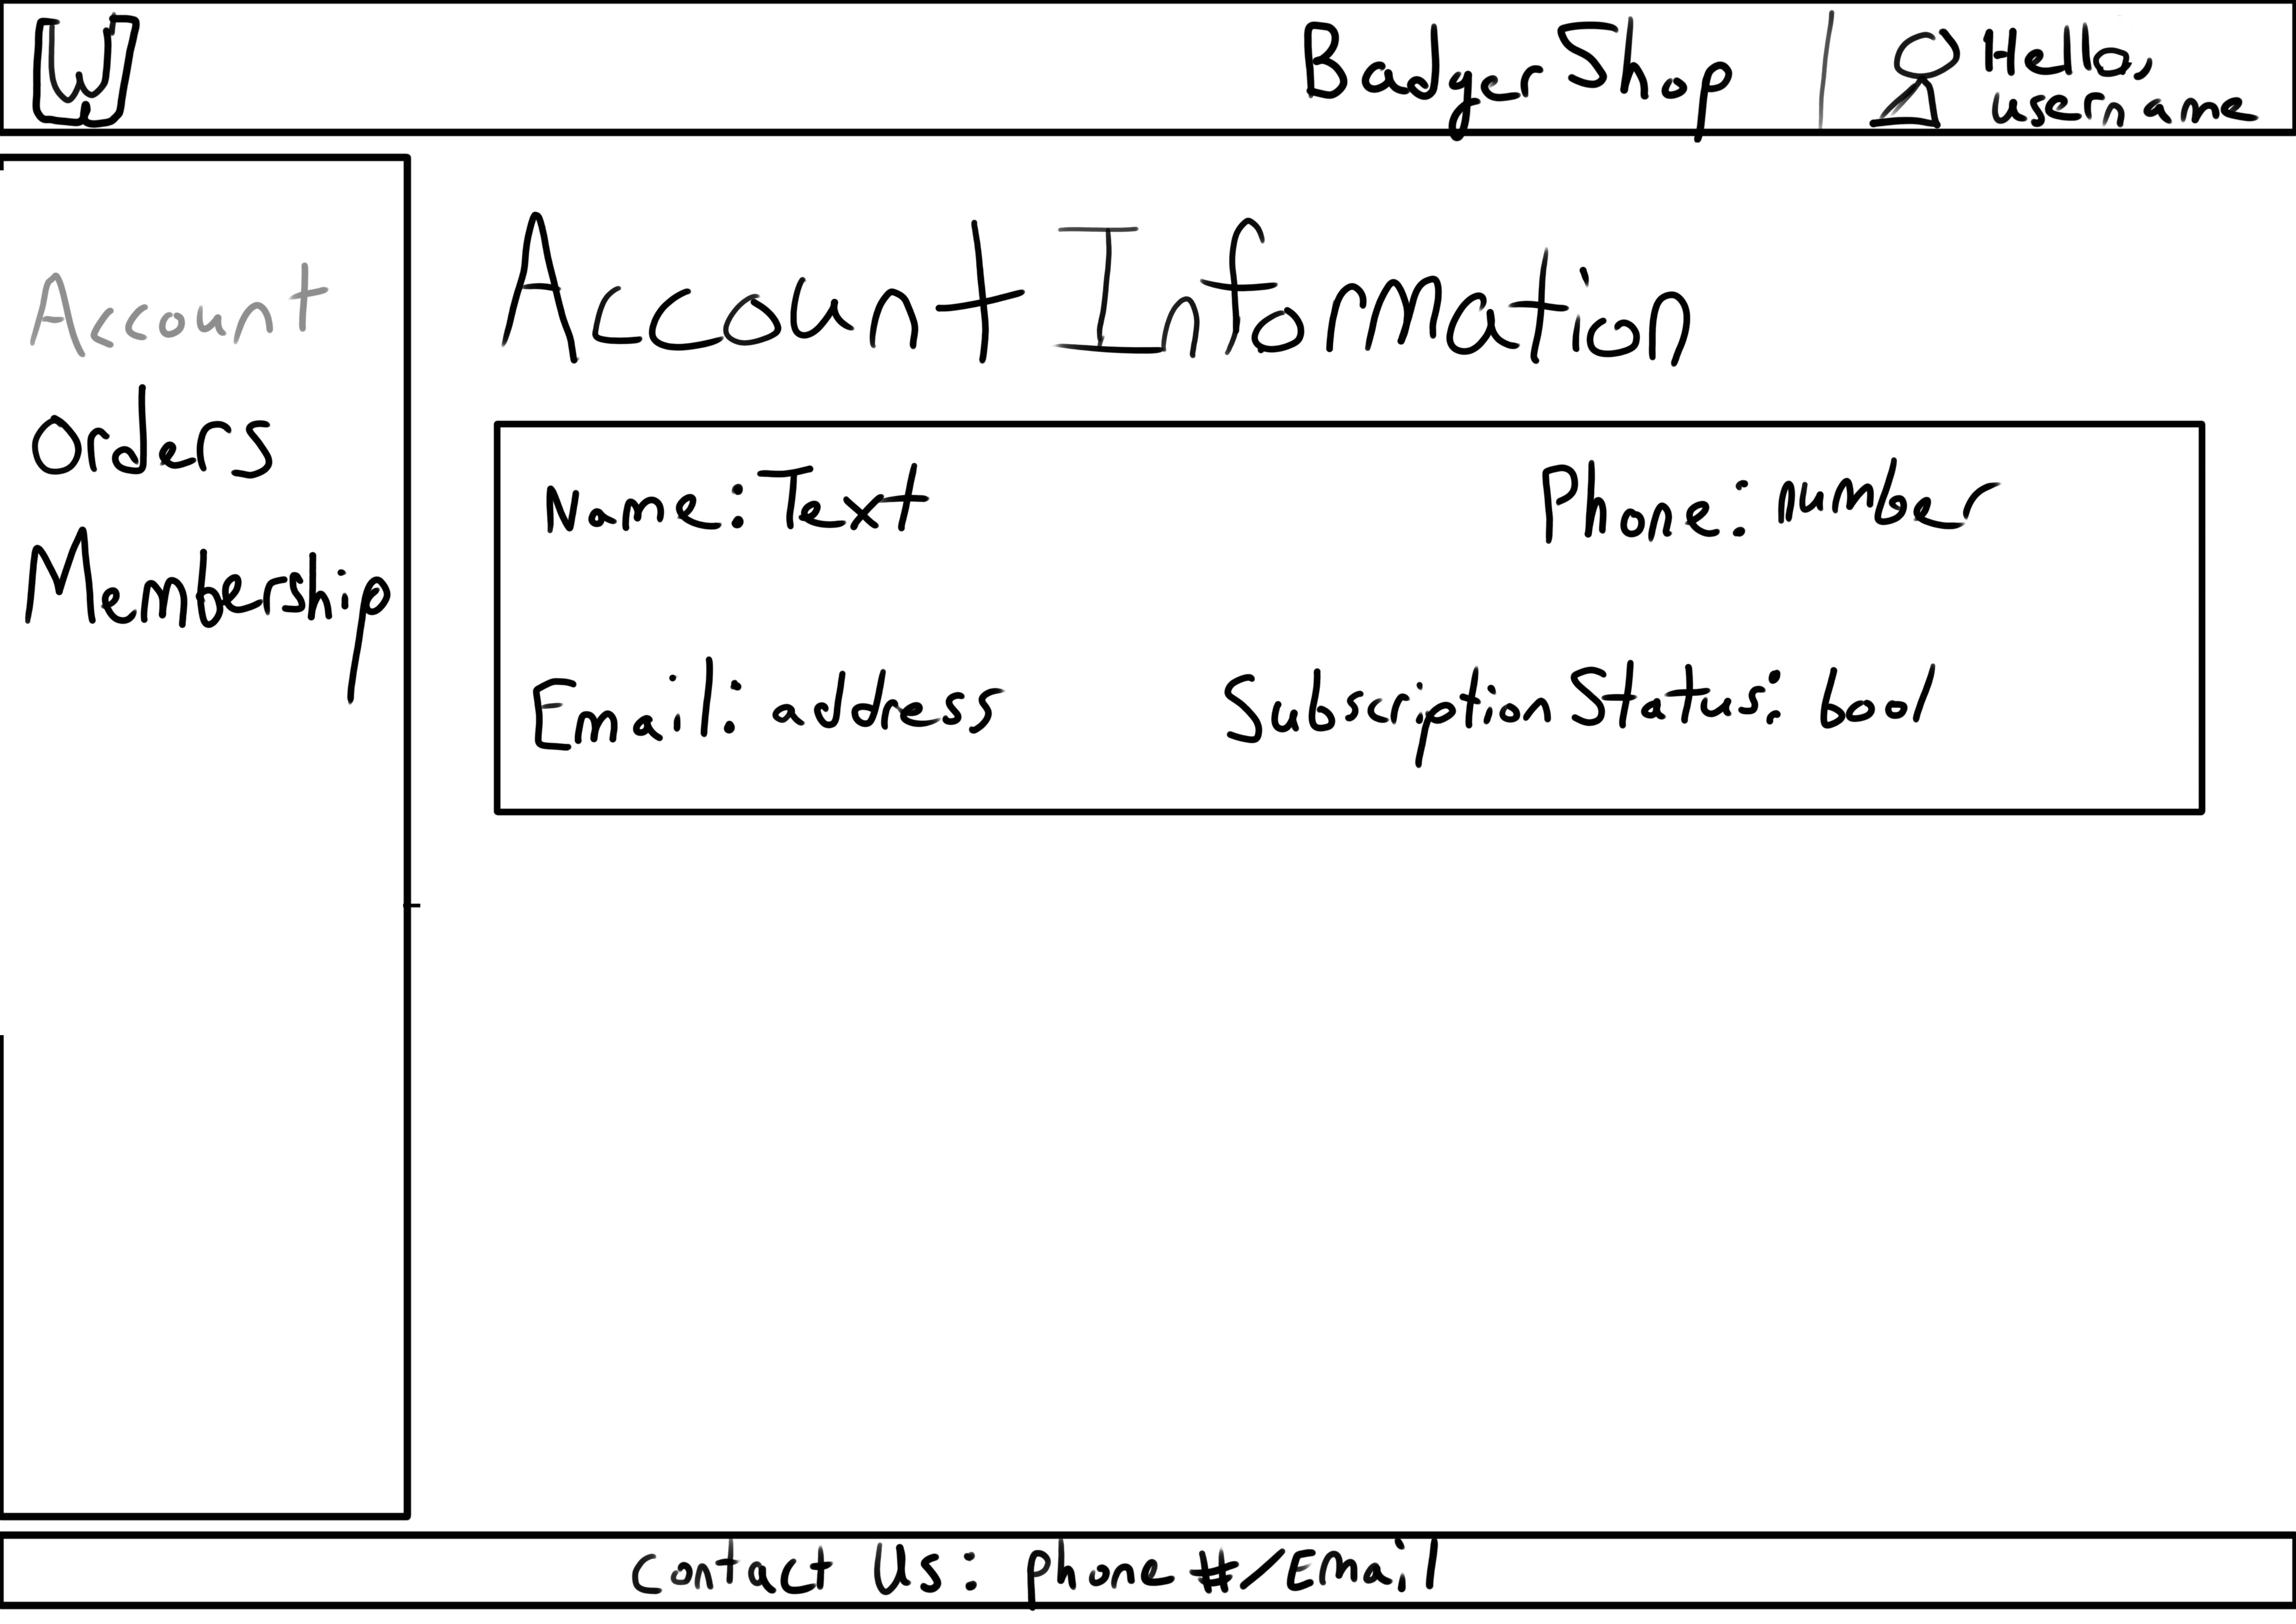 W
Badger Shop
Hello,
username
Account
Orders
Membership
Account Information
Name: Text
Phone: number
Email: address
Subscription Status: bool
Contact Us: Phone #/Email